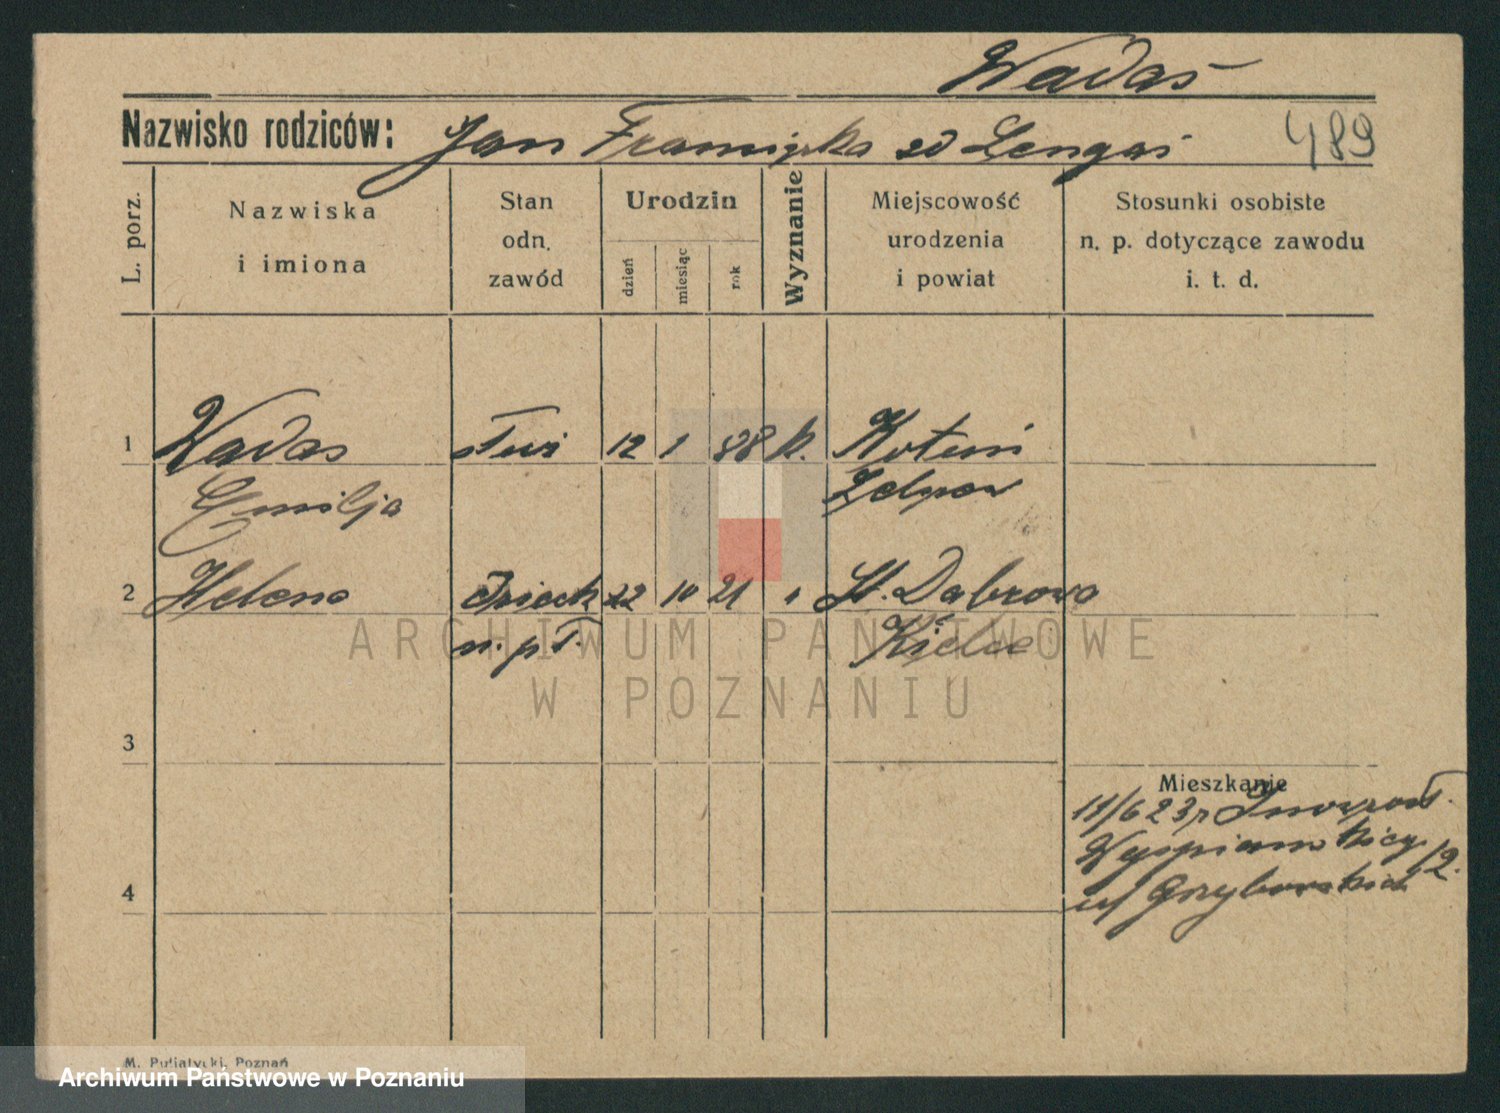 Wadaś
Nazwisko rodziców: Jan Franciszka zd Lengas
489
L. porz.
Nazwiska
i imiona
Stan
odn.
zawód
Urodzin
dzień
miesiąc
rok
Wyznanie
Miejscowość
urodzenia
i powiat
Stosunki osobiste
n. p. dotyczące zawodu
i. t. d.
1 Wadas 12 1 88 k. Kotuń
Emilja
2 Helena 22 10 21 " St. Dąbrowa
n. p. T. Kielce
ARCHIWUM PAŃSTWOWE
W POZNANIU
3
Mieszkanie
11/6 23 r
12.
4
M. Putiatycki, Poznań
Archiwum Państwowe w Poznaniu